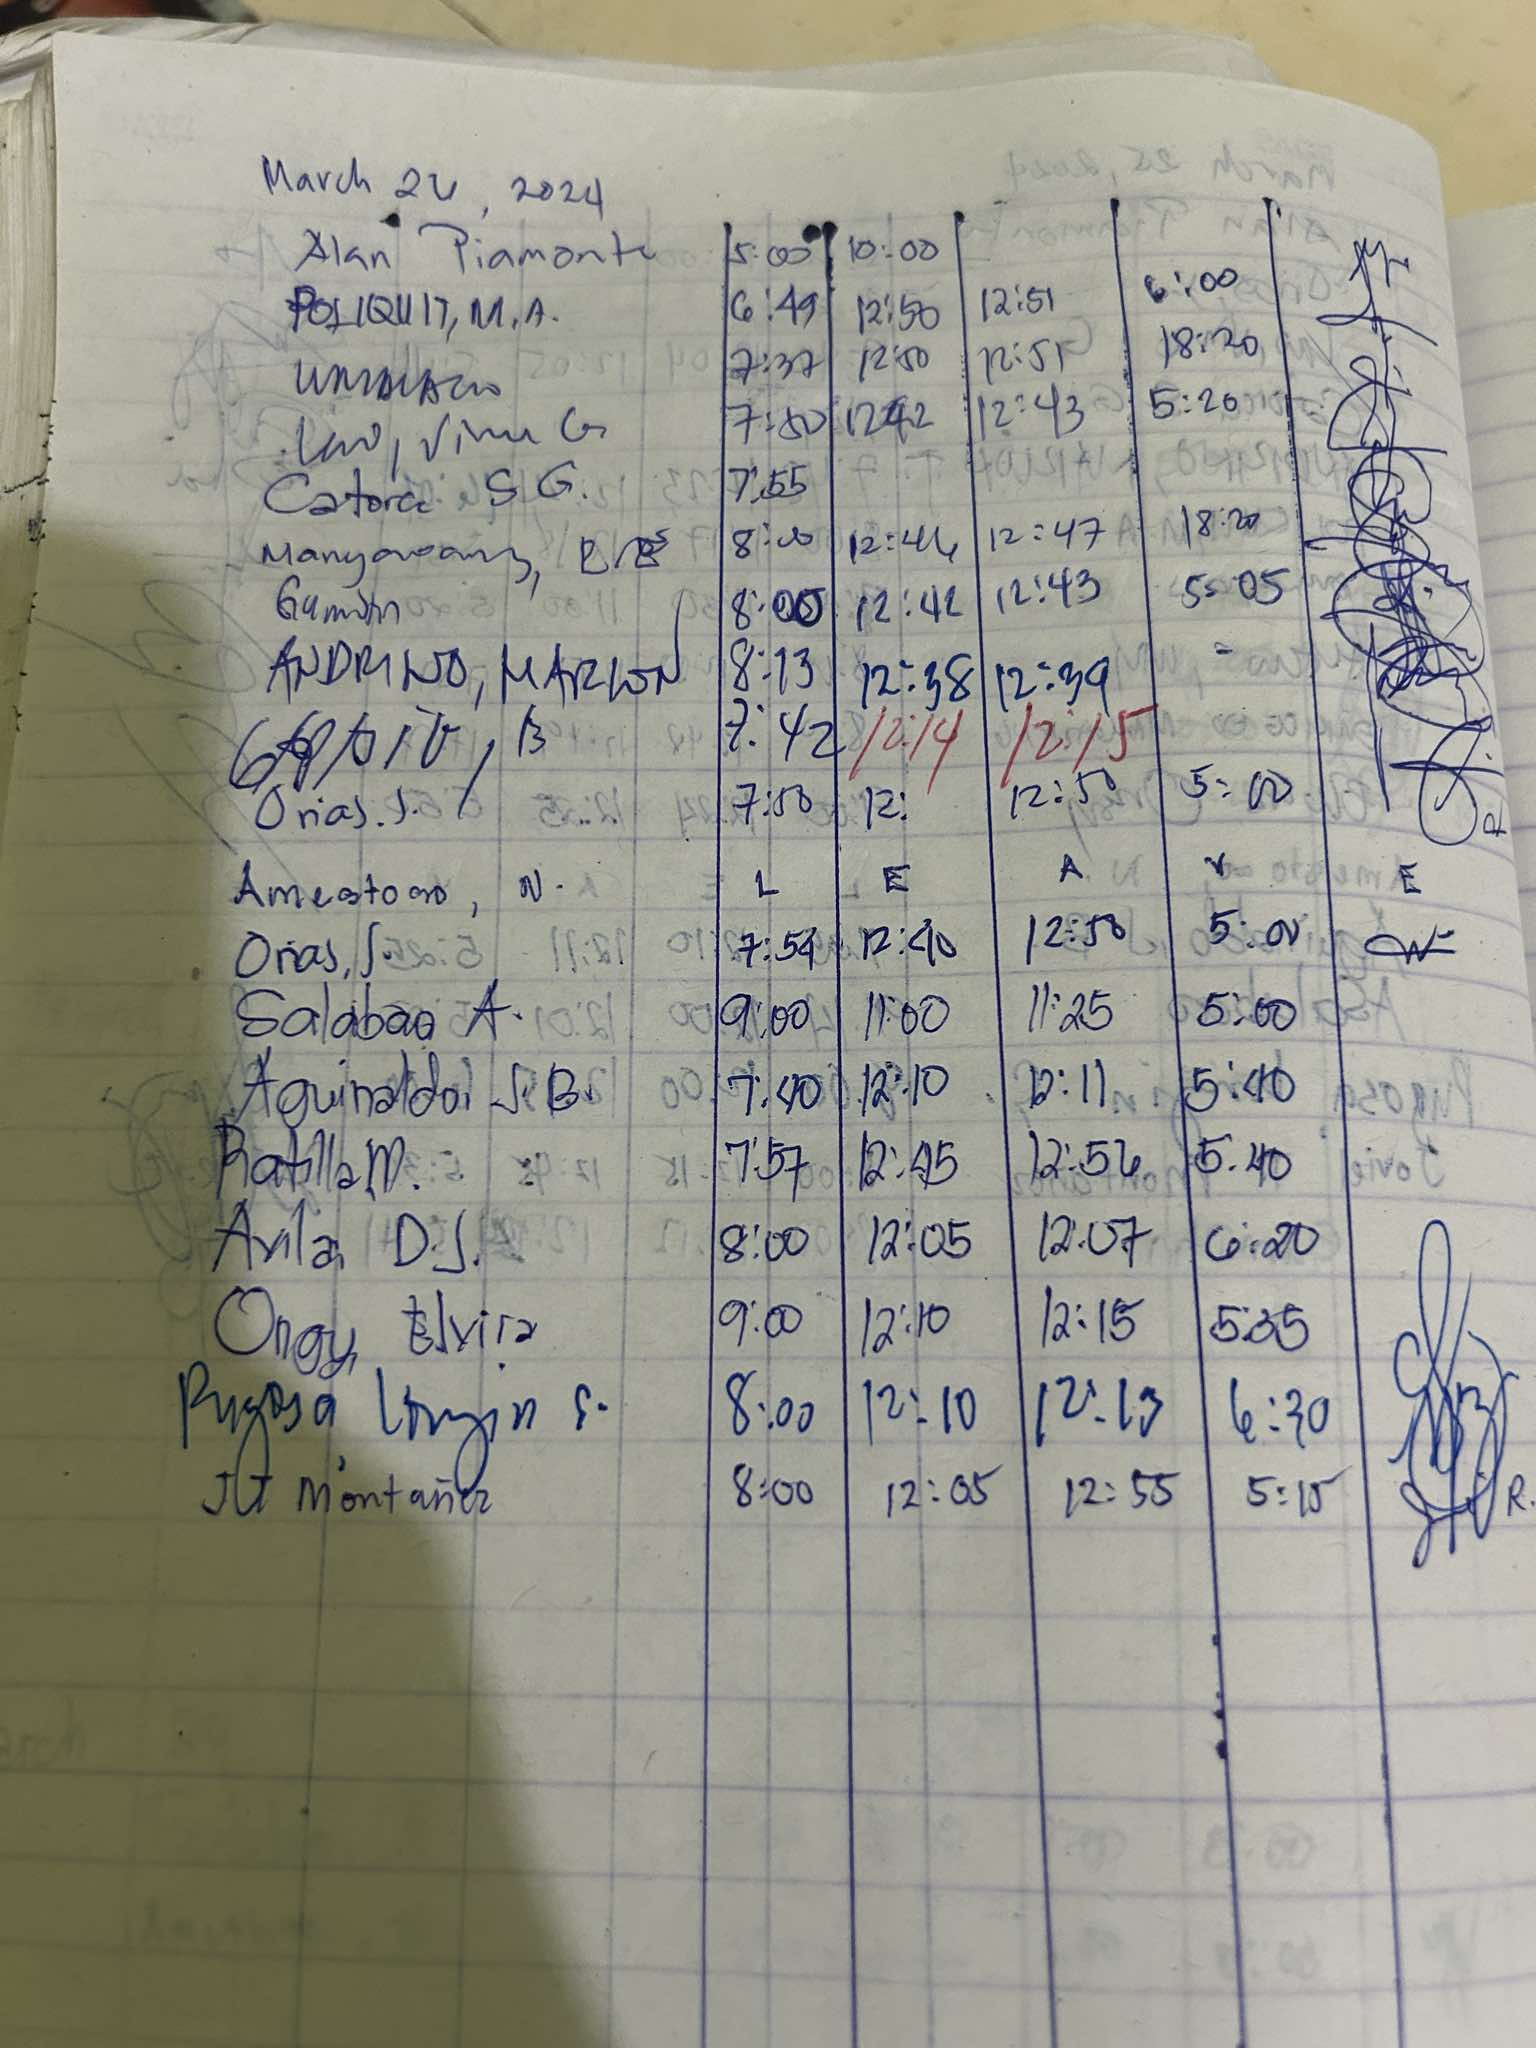 March 26, 2024
Alan Piamonte 5:00 10:00
POLIQUIT, M.A. 6:49 12:50 12:51 6:00
7:37 12:50 12:51 18:20
7:50 1242 12:43 5:20
Catora S G. 7:55
8:00 12:46 12:47 18:20
8:05 12:42 12:43 5:05
ANDRINO, MARLON 8:13 12:38 12:39 -
B 7:42 12:14 12:15
Orias. S. 7:50 12: 12:50 5:00
Amestoso, N. L E A V E
Orias, S. 7:54 12:40 12:50 5:00
Salabao A. 9:00 11:00 11:25 5:00
Aguinaldo, S.B. 7:40 12:10 12:11 5:40
Ratilla, M. 7:57 12:45 12:56 5:40
Avila, D.S. 8:00 12:05 12:07 6:20
Ongy, Elvira 9:00 12:10 12:15 5:35
Pugosa S. 8:00 12:10 12:13 6:30
JJ Montañez 8:00 12:05 12:55 5:15
R.